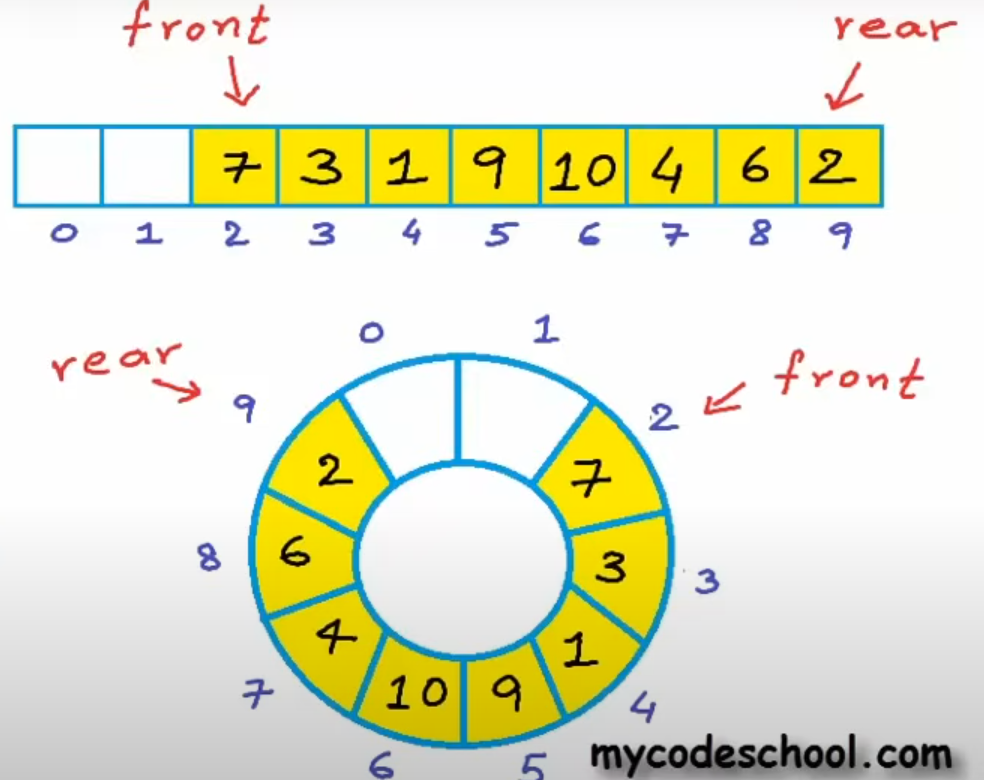 front rear
7 3 1 9 10 4 6 2
0 1 2 3 4 5 6 7 8 9
0 1
rear front
9 2
2 7
8 6 3 3
4 1
7 10 9 4
6 5
mycodeschool.com